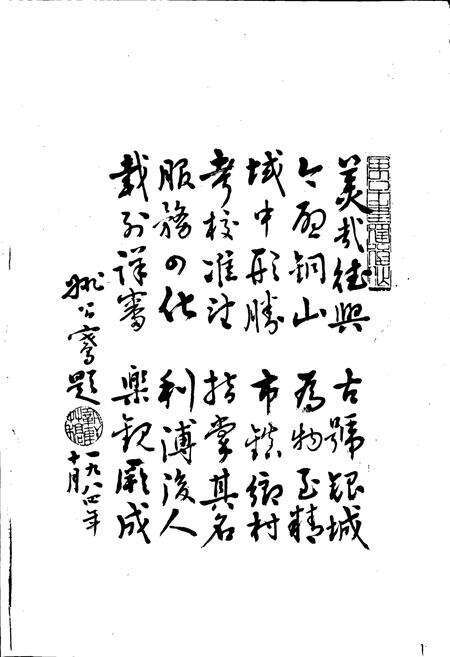 美哉德興 古號銀城
今銅山 為物至精
域中形勝 市鎮鄉村
考校准 指掌其名
服務四化 利溥後人
載列詳審 樂觀厥成
姚公騫題
一九八四年
十月
1